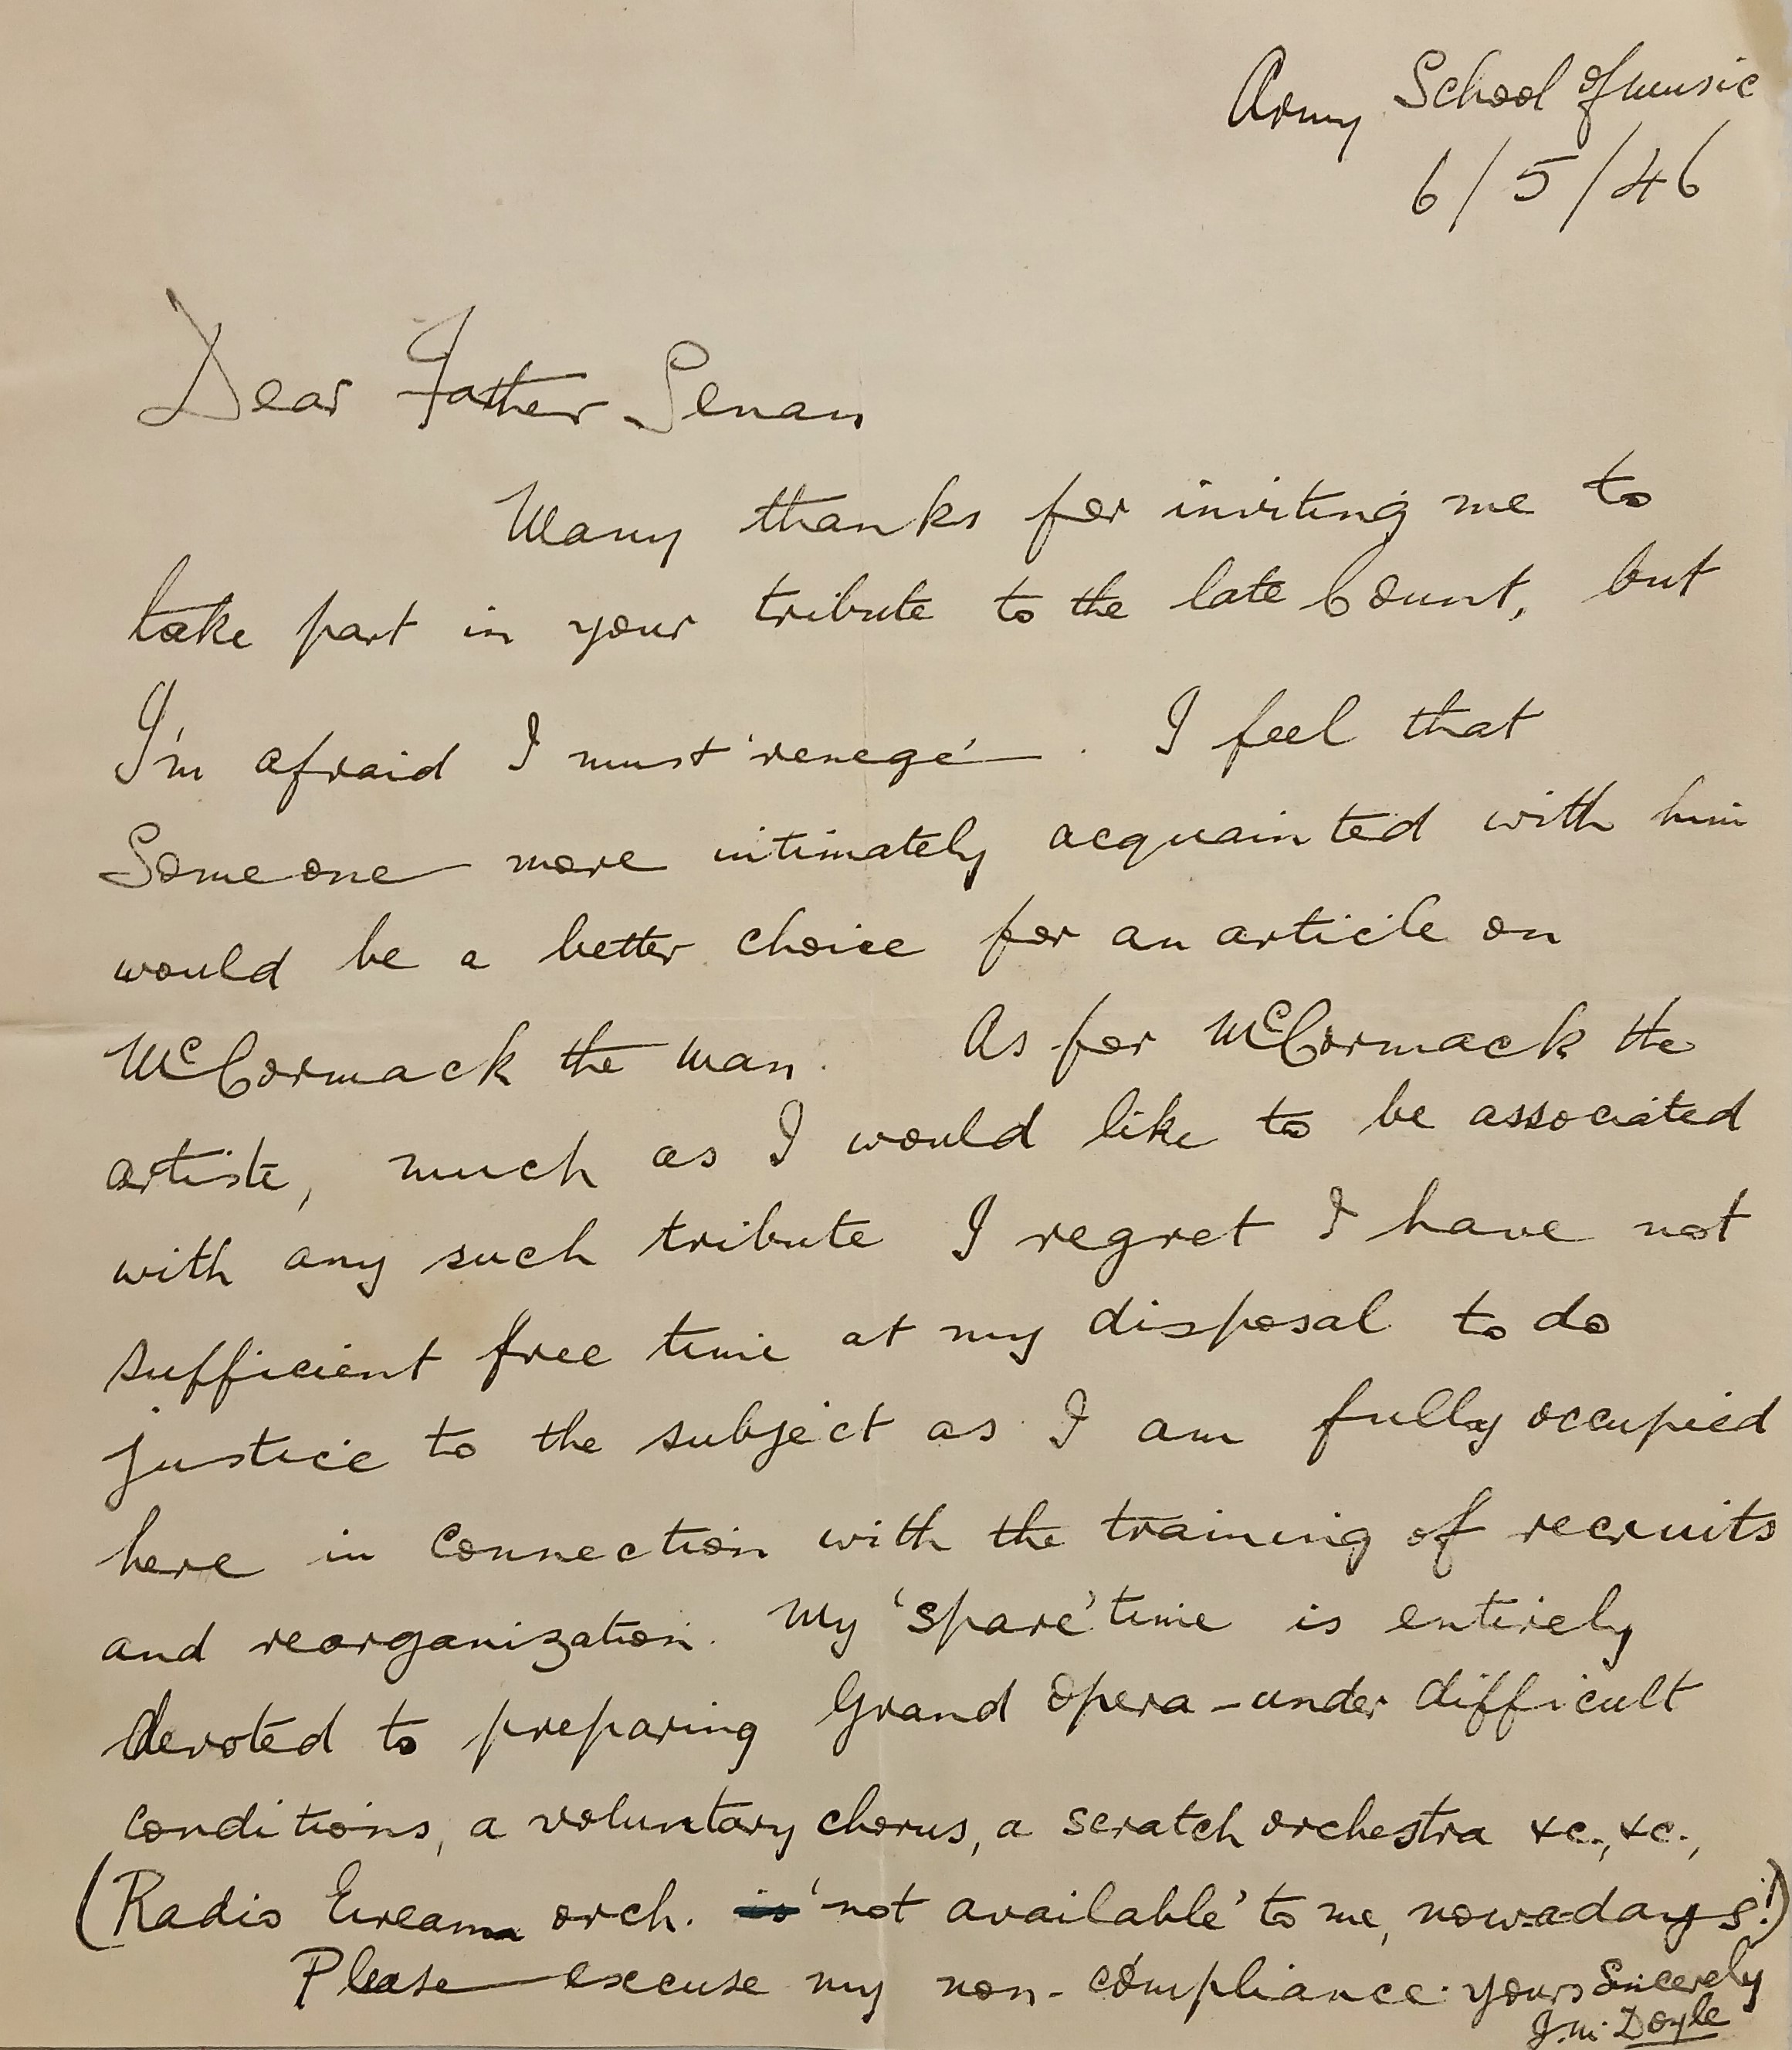 Army School of Music
6/5/46
Dear Father Senan
Many thanks for inviting me to
take part in your tribute to the late Count, but
I'm afraid I must 'renege'. I feel that
Someone more intimately acquainted with him
would be a better choice for an article on
McCormack the man. As for McCormack the
artiste, much as I would like to be associated
with any such tribute I regret I have not
sufficient free time at my disposal to do
justice to the subject as I am fully occupied
here in connection with the training of recruits
and reorganization. My 'spare' time is entirely
devoted to preparing Grand Opera - under difficult
conditions, a voluntary chorus, a scratch orchestra &c., &c.,
(Radio Eireann orch. is 'not available' to me, now-a-days!)
Please excuse my non-compliance. Yours Sincerely
J.M. Doyle